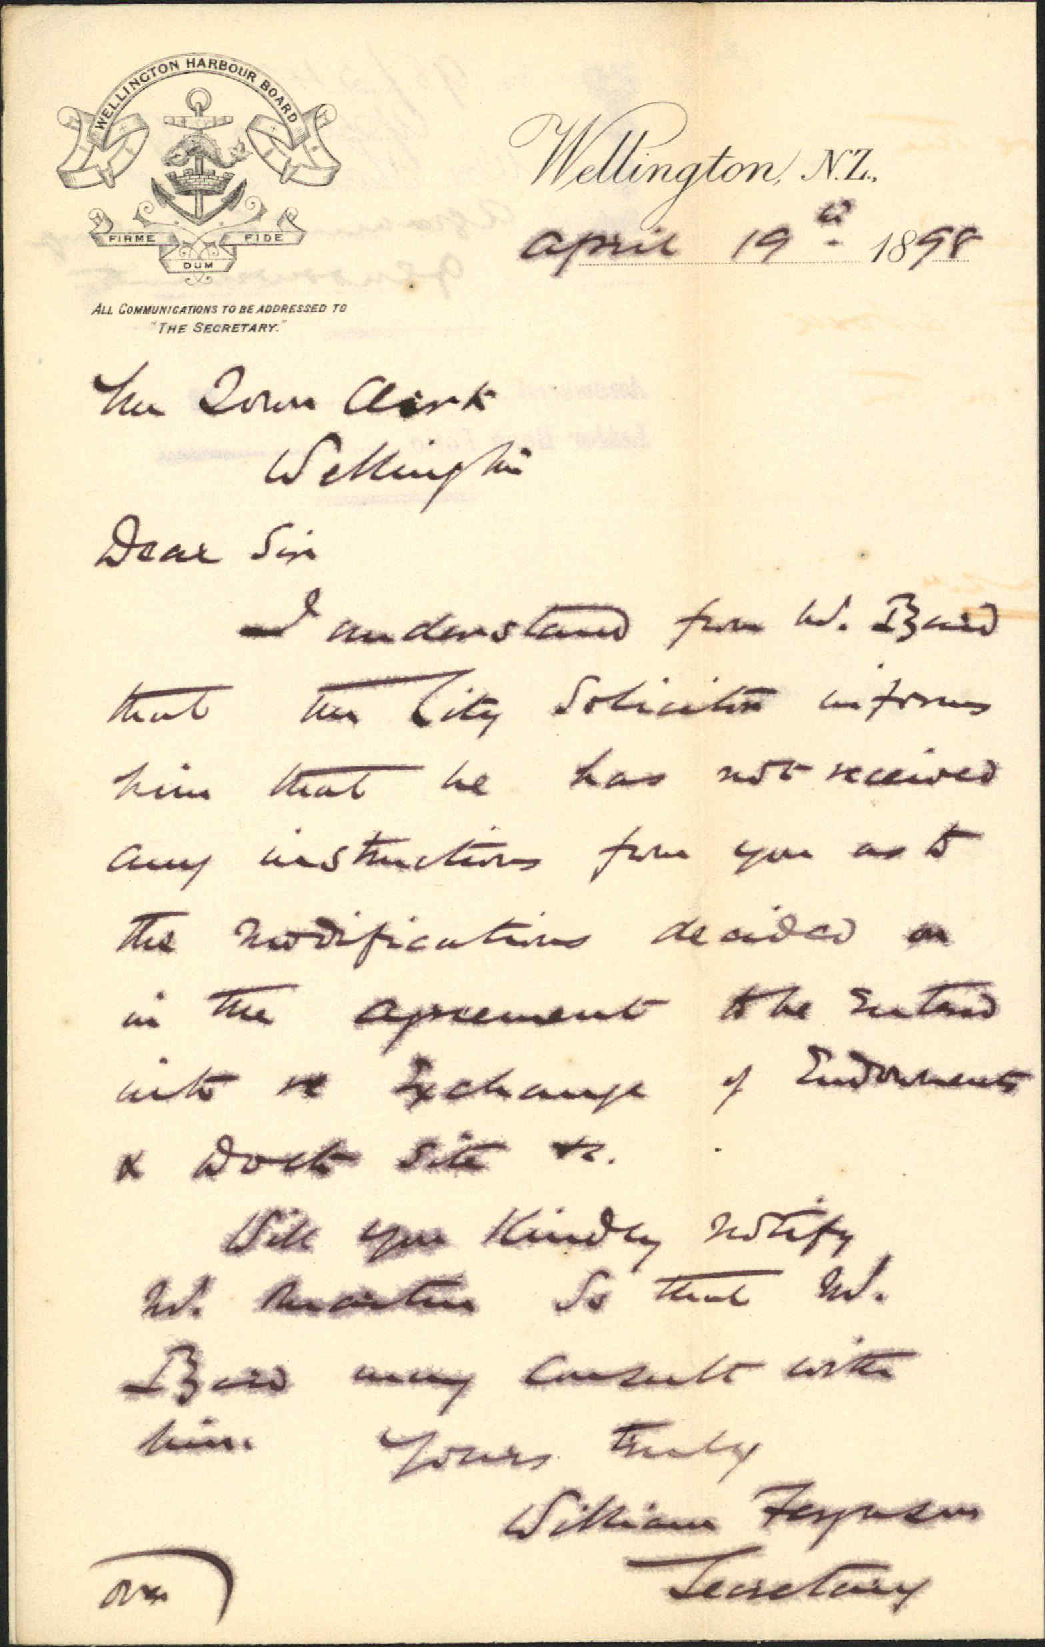 WELLINGTON HARBOUR BOARD
FIRME DUM FIDE
ALL COMMUNICATIONS TO BE ADDRESSED TO
"THE SECRETARY."
Wellington, N.Z.,
April 19th 1898
The Town Clerk
Wellington
Dear Sir
I understand from Mr. Baird
that the City Solicitor informs
him that he has not received
any instructions from you as to
the modifications decided on
in the agreement to be entered
into re Exchange of Endowments
& Dock Site &c.
Will you kindly notify
Mr. Martin so that Mr.
Baird may consult with
him Yours truly
William Ferguson
Secretary
over